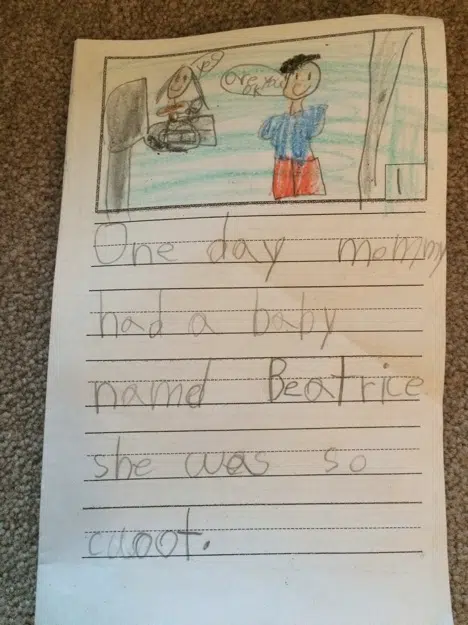 yes
Ore you
ok
1
One day mommy
had a baby
namd Beatrice
she was so
cuoot.